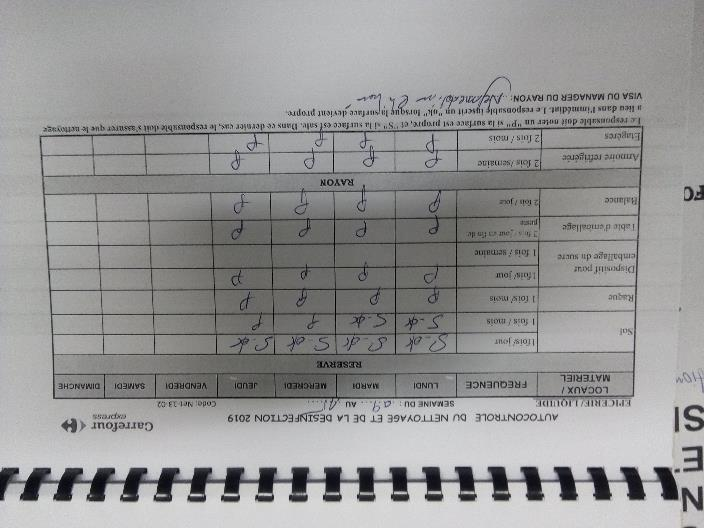 AUTOCONTROLE DU NETTOYAGE ET DE LA DESINFECTION 2019
Carrefour
express
EPICERIE/LIQUIDE SEMAINE DU : AU Code: Net-13-02
LOCAUX / MATERIEL FREQUENCE LUNDI MARDI MERCREDI JEUDI VENDREDI SAMEDI DIMANCHE
RESERVE
Sol 1fois/ jour S-ok S-ok S-ok S-ok
1 fois / mois S-ok S-ok P P
Raque 1 fois/ mois P P P P
Dispositif pour emballage du sucre 1fois/ jour P P P P
1 fois / semaine
Table d'emballage P P P P
Balance 2 fois / jour P P P P
RAYON
Armoire réfrigérée 2 fois/semaine P P P P
Etagères 2 fois / mois P P P P
Le responsable doit noter un "P" si la surface est propre, et "S" si la surface est sale. Dans ce dernier cas, le responsable doit s'assurer que le nettoyage
a lieu dans l'immédiat. Le responsable inscrit un "ok" lorsque la surface devient propre.
VISA DU MANAGER DU RAYON: